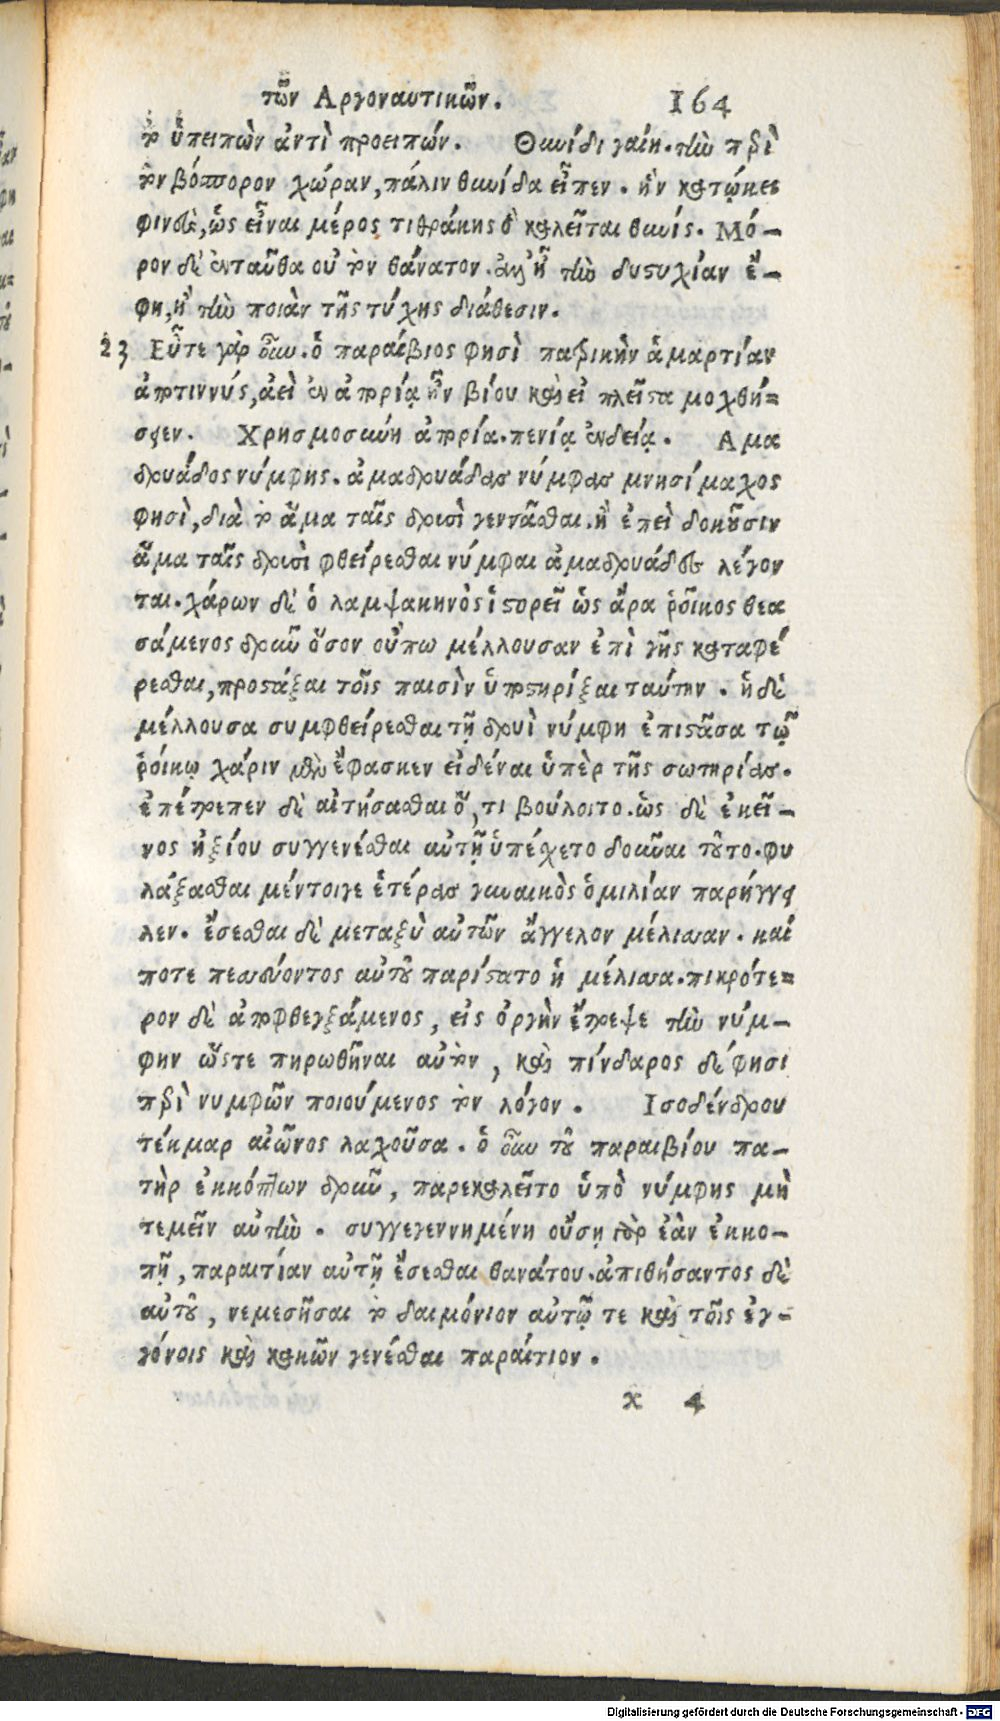 τῶν Αργοναυτικῶν. 164
τὸ ὑπειπὼν ἀντὶ προειπών. Θωίδι γαίῃ. τὴν περὶ
τὸν βόσπορον χώραν, πάλιν θωίδα εἶπεν. ἣν κατῴκει
φινεὺς, ὡς εἶναι μέρος τι θρᾴκης ὃ καλεῖται θωίς. Μό-
ρον δὲ ἐνταῦθα οὐ τὸν θάνατον. ἀλλ' ἢ τὴν δυστυχίαν ἔ-
φη, ἢ τὴν ποιὰν τῆς τύχης διάθεσιν.
23 Εὖτε γὰρ οὖν. ὁ παραίβιος φησὶ πατρικὴν ἁμαρτίαν
ἀποτιννύς, ἀεὶ ἐν ἀπορίᾳ ἦν βίου καὶ εἰ πλεῖστα μοχθή-
σειεν. Χρησμοσύνη ἀπορία. πενίᾳ ἐνδείᾳ. Αμα
δρυάδος νύμφης. ἁμαδρυάδας νύμφας μνησίμαχος
φησὶ, διὰ τὸ ἅμα ταῖς δρυσὶ γεννᾶσθαι. ἢ ἐπεὶ δοκοῦσιν
ἅμα ταῖς δρυσὶ φθείρεσθαι νύμφαι ἁμαδρυάδες λέγον
ται. χάρων δὲ ὁ λαμψακηνὸς ἱστορεῖ ὡς ἄρα ῥοῖκος θεα
σάμενος δρυῦ ὅσον οὔπω μέλλουσαν ἐπὶ γῆς καταφέ
ρεσθαι, προστάξαι τοῖς παισὶν ὑποστηρίξαι ταύτην. ἡ δὲ
μέλλουσα συμφθείρεσθαι τῇ δρυὶ νύμφη ἐπιστᾶσα τῷ
ῥοίκῳ χάριν μὲν ἔφασκεν εἰδέναι ὑπὲρ τῆς σωτηρίας.
ἐπέτρεπεν δὲ αἰτήσασθαι ὅ, τι βούλοιτο. ὡς δὲ ἐκεῖ-
νος ἠξίου συγγενέσθαι αὐτῇ ὑπέχετο δοῦναι τοῦτο. φυ
λάξασθαι μέντοιγε ἑτέρας γυναικὸς ὁμιλίαν παρήγγει
λεν. ἔσεσθαι δὲ μεταξὺ αὐτῶν ἄγγελον μέλισσαν. καί
ποτε πεσσεύοντος αὐτοῦ παρίπτατο ἡ μέλισσα. πικρότε-
ρον δὲ ἀποφθεγξάμενος, εἰς ὀργὴν ἔτρεψε τὴν νύμ-
φην ὥστε πηρωθῆναι αὐτὸν, καὶ πίνδαρος δέ φησι
περὶ νυμφῶν ποιούμενος τὸν λόγον. Ισοδένδρου
τέκμαρ αἰῶνος λαχοῦσα. ὁ οὖν τοῦ παραιβίου πα-
τὴρ ἐκκόπτων δρυῦ, παρεκαλεῖτο ὑπὸ νύμφης μὴ
τεμεῖν αὐτὴν. συγγεγεννημένη οὔσῃ γὰρ ἐὰν ἐκκο-
πῇ, παραιτίαν αὐτῇ ἔσεσθαι θανάτου. ἀπιθήσαντος δὲ
αὐτοῦ, νεμεσῆσαι τὸ δαιμόνιον αὐτῷ τε καὶ τοῖς ἐγ-
γόνοις καὶ κακῶν γενέσθαι παραίτιον.
x 4
Digitalisierung gefördert durch die Deutsche Forschungsgemeinschaft - DFG